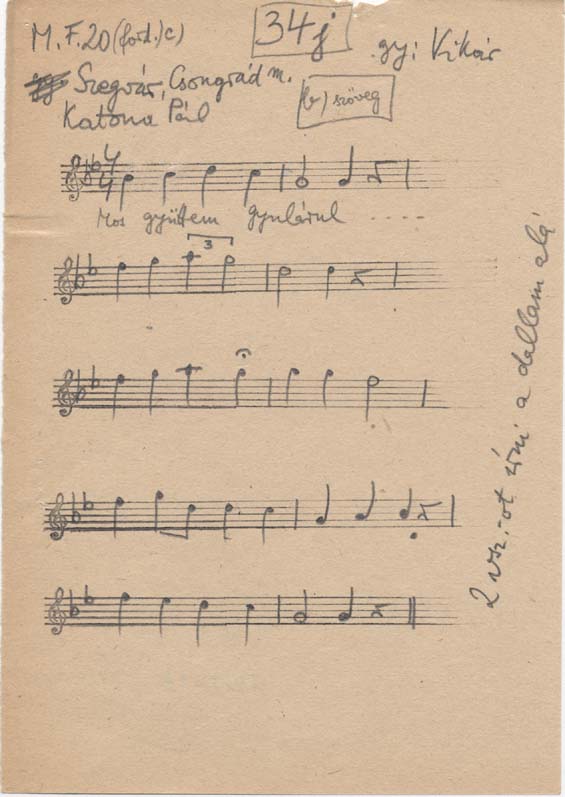 34j
M.F.20 (ford.) c)
gy: Vikár
Szegvár, Csongrád m.
Katona Pál
(b) szöveg
4
4
Mos gyüttem gyulárul .....
3
2 vsz.-ot írni a dallam alá